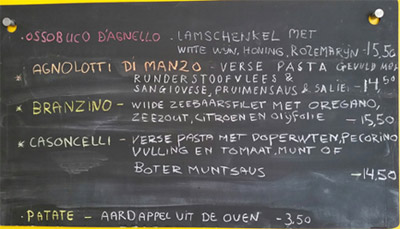 · OSSOBUCO D'AGNELLO · LAMSCHENKEL MET
WITTE WIJN, HONING, ROZEMARIJN - 15,50
* AGNOLOTTI DI MANZO - VERSE PASTA GEVULD MET
RUNDERSTOOFVLEES &
SANGIOVESE, PRUIMENSAUS & SALIE - 14,50
* BRANZINO - WILDE ZEEBAARSFILET MET OREGANO,
ZEEZOUT, CITROEN EN OLIJFOLIE - 15,50
* CASONCELLI - VERSE PASTA MET DOPERWTEN, PECORINO
VULLING EN TOMAAT, MUNT OF
BOTER MUNTSAUS - 14,50
· PATATE - AARDAPPEL UIT DE OVEN - 3,50